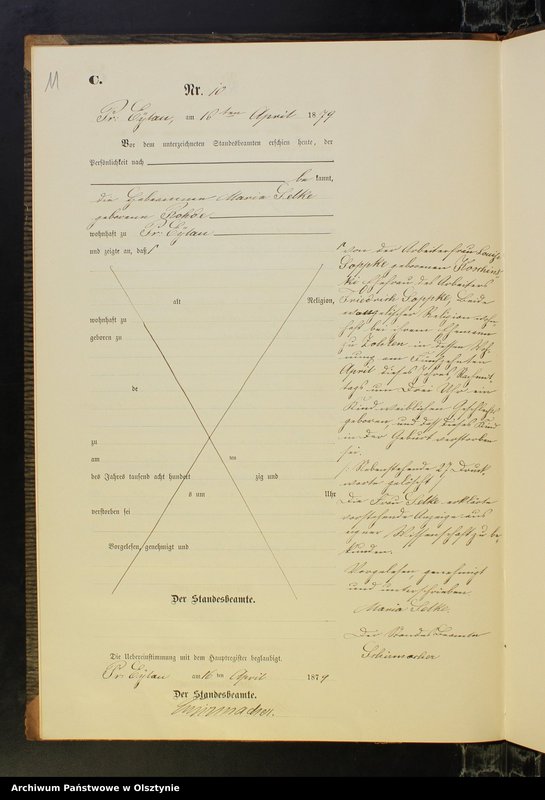 11
C.
Nr. 10
Pr. Eylau, am 16ten April 1879
Vor dem unterzeichneten Standesbeamten erschien heute, der
Persönlichkeit nach
be kannt,
die Hebeamme Maria Selke
geborene
wohnhaft zu Pr. Eylau
und zeigte an, daß
von der Arbeiterfrau Louise
Soppke geborenen
Ehefrau des Arbeiters
Friedrich Soppke, beide
evangelischer Religion wohn-
haft bei ihrem Ehemann
zu in dessen Woh-
nung am fünfzehnten
April dieses Jahres Nachmit-
tags um drei Uhr ein
Kind weiblichen Geschlechts
geboren, und daß dieses Kind
in der Geburt verstorben
sei.
Nebenstehende 27 Druck-
worte gelöscht
Die Frau Selke erklärte
vorstehende Anzeige aus
eigener Wissenschaft zu be-
kunden.
Vorgelesen, genehmigt
und unterschrieben
Maria Selke.
Der Standesbeamte
Schirmacher
alt
Religion,
wohnhaft zu
geboren zu
de
zu
am ten
des Jahres tausend acht hundert zig und
s um Uhr
verstorben sei
Vorgelesen, genehmigt und
Der Standesbeamte.
Die Uebereinstimmung mit dem Hauptregister beglaubigt.
Pr. Eylau am 16ten April 1879
Der Standesbeamte.
Schirmacher.
Archiwum Państwowe w Olsztynie